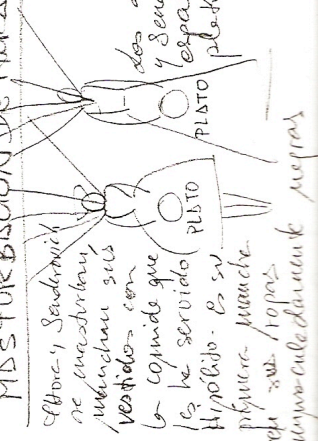 MASTURBACIÓN DE
Ahora, Sendrovich
se masturban,
manchan sus
vestidos con
la comida que
les ha servido
Hipólito. Es su
primera mancha
en sus ropas
inmaculadamente negras
PLATO
PLATO
Los
y Send
espa
plet